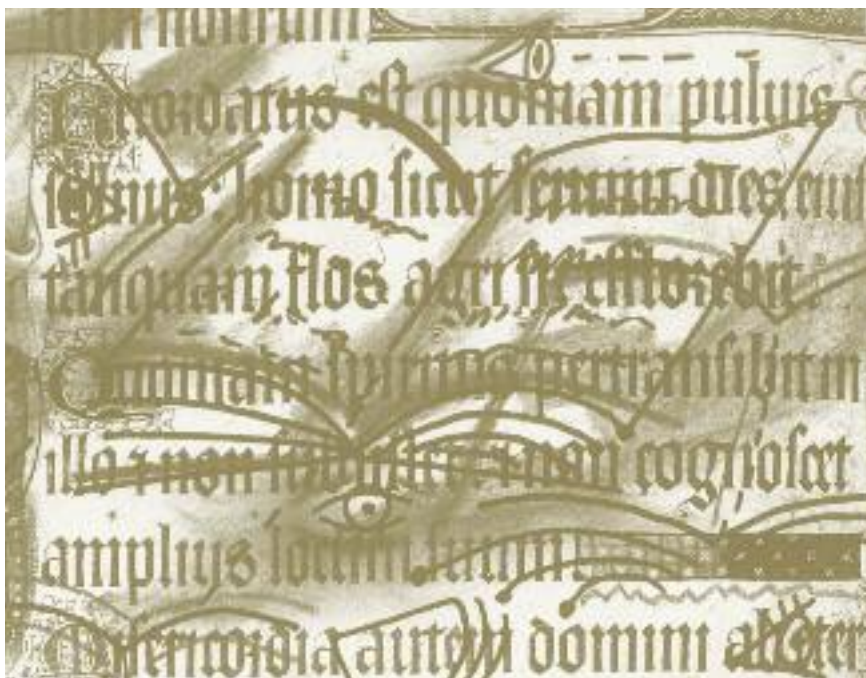 nostrum
Recordatus est quoniam pulvis
sumus : homo sicut fenum dies eius
tanquam flos agri sic efflorebit.
Quoniam spiritus pertransibit in
illo ⁊ non subsistet ⁊ non cognoscet
amplius locum suum
Misericordia autem domini ab eter